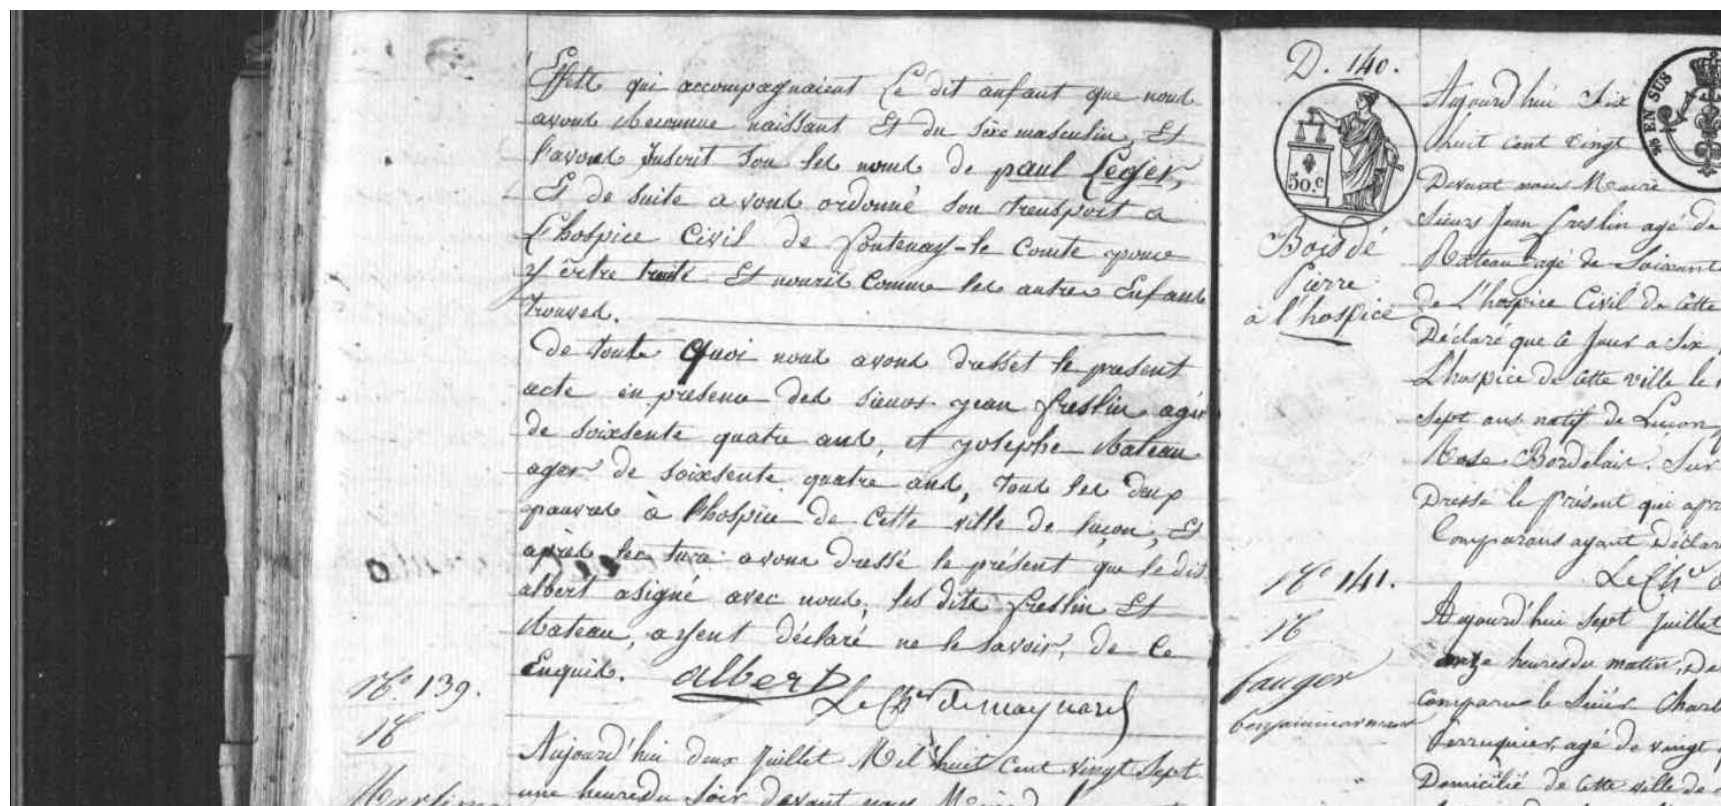 Effets qui accompagnaient Le dit anfant que nous
avons Reconnue naissant Et du sexe masculin, Et
l'avons Inscrit sou les noms de paul Léger,
Et de suite a vons ordonné son trensport a
L'hospice Civil de fontenay-le Comte pour
y êrtre traité Et nourit Comme les autres Enfant
trouves.
De toute Quoi nous avons dresset le présent
acte en présence des sieurs jean freslin agér
de soixsente quatre ans, et yosephe Rateau
ager de soixsente quatre ans, tous les deux
pauvres à l'hospice de Cette ville de luçon, Et
après lec tura avons dressé le présent que le dit
albert asigné avec nous, les dits freslin Et
Rateau, ayent déclaré ne le savoir, de Ce
Enquis. albert
Le Cher De maynard
No. 139.
N
Aujourd'hui deux juillet Mil huit Cent vingt Sept
une heure du Soir devant nous Maire
D. 140.
50.c
EN SUS
Boisdé
Pierre
a l'hospice
Aujourd'hui Six
huit cent vingt
Devant nous Maire
Sieurs Jean freslin agé de
Rateau agé de Soixante
de L'hospice Civil de Cette
Déclaré que Ce Jour a Six
L'hospice de Cette ville le
Sept ans natif de Luçon
Rose Bordelais. Sur
Dressé le Présent qui apr
Comparans ayant Déclar
Le Cher
No 141.
N
fauger
Aujourd'hui Sept juillet
onze heures du matin, De
comparu le Sieur Charl
Perruquier, agé de vingt
Domicilié de Cette ville de